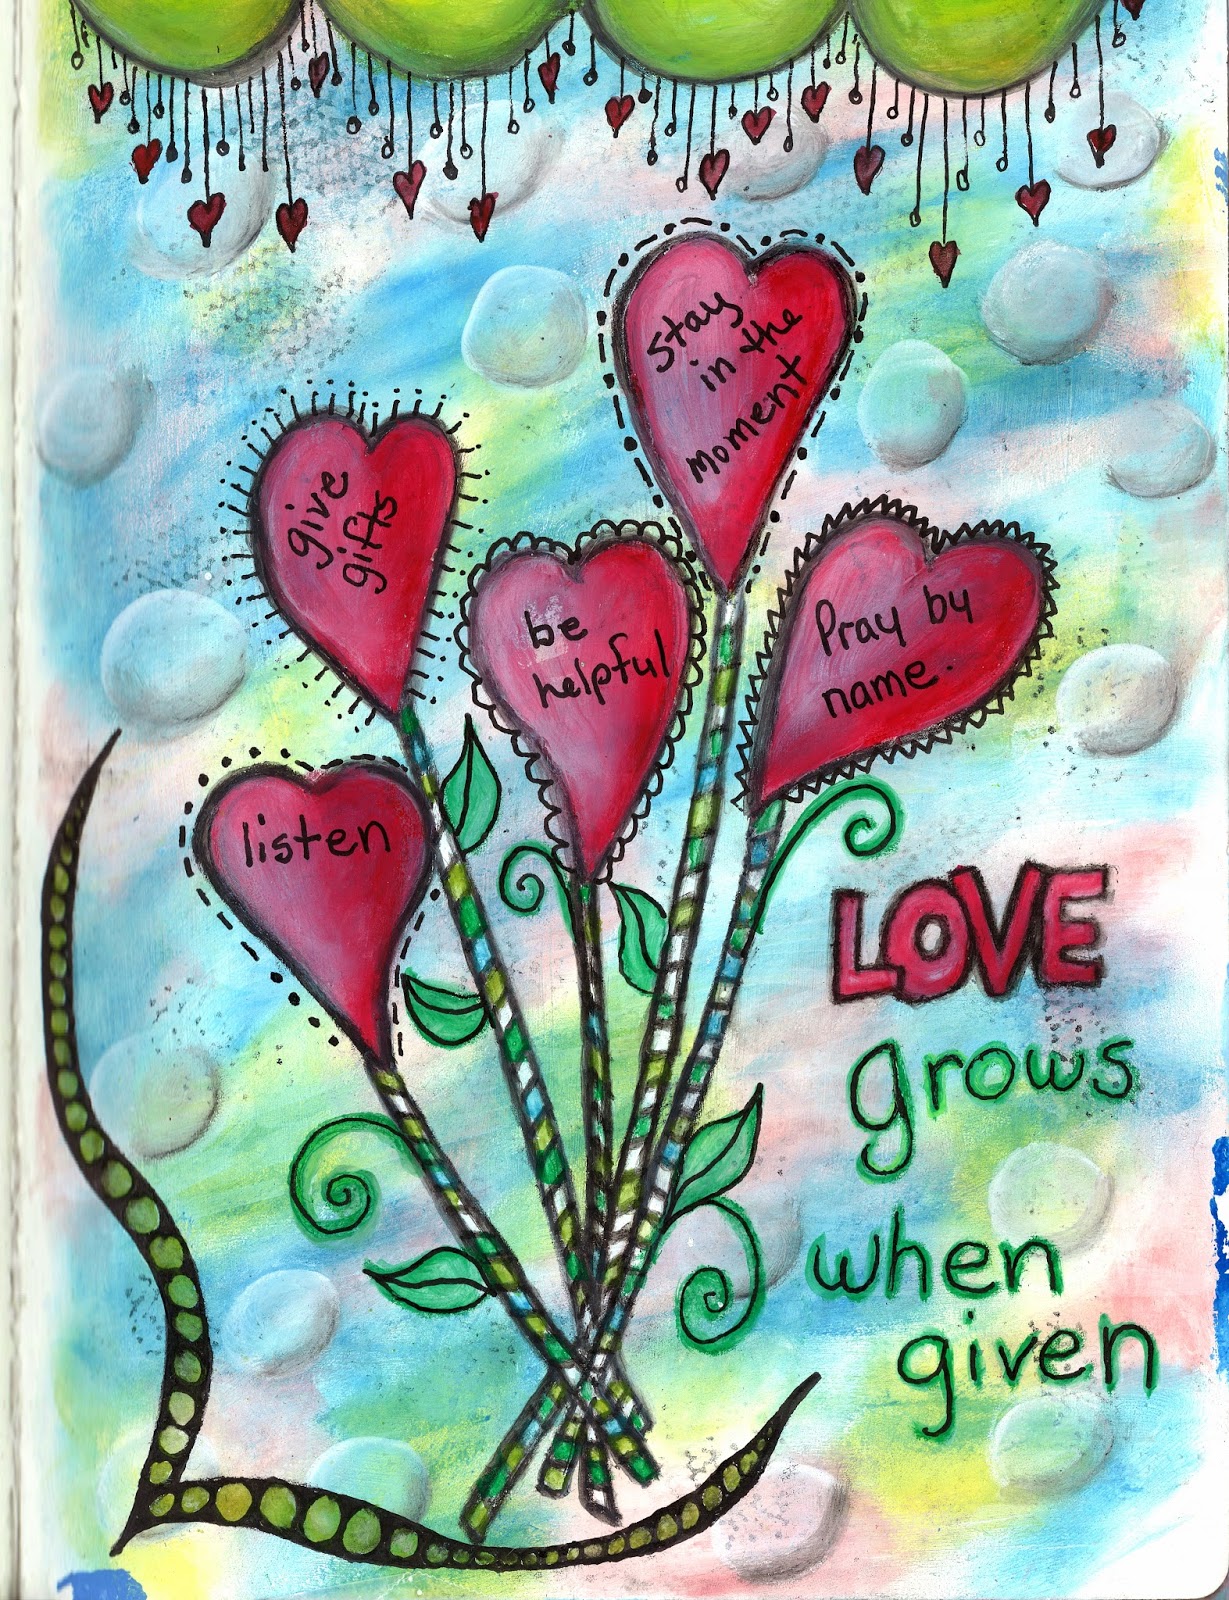 Stay
in the
Moment
give
gifts
be
helpful
Pray by
name.
listen
LOVE
grows
when
given